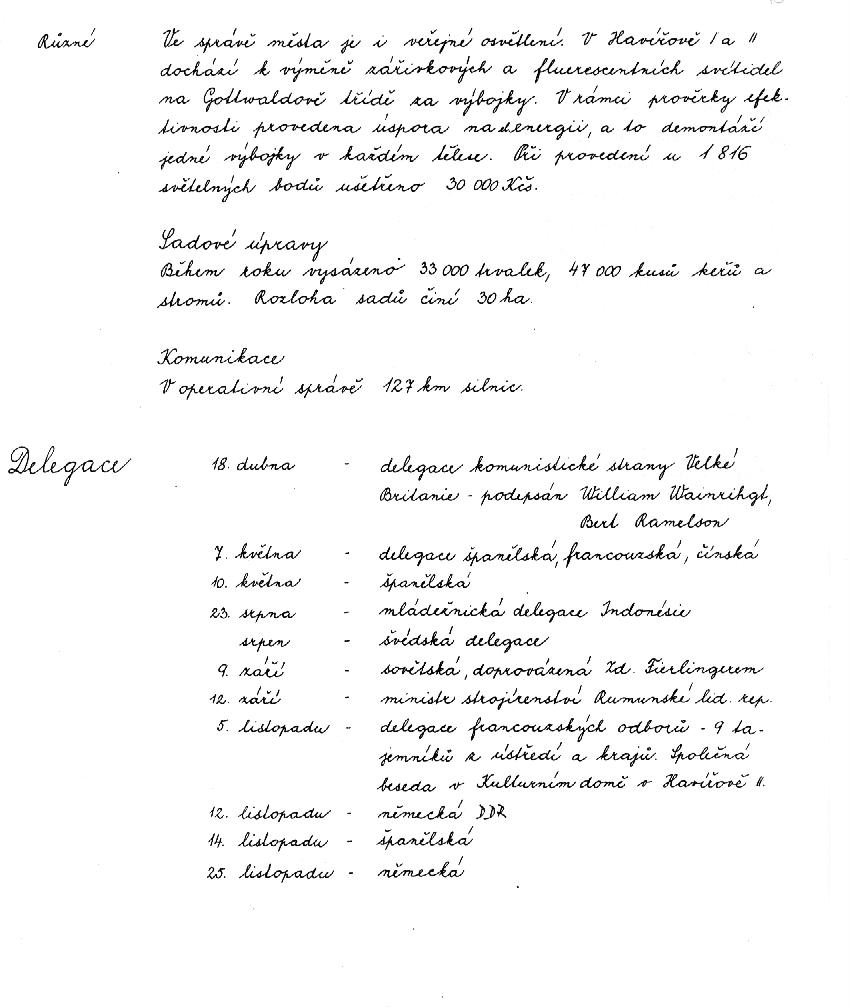 Různé Ve správě města je i veřejné osvětlení. V Havířově I a II
dochází k výměně zářivkových a fluerescentních svítidel
na Gottwaldově třídě za výbojky. V rámci prověrky efek-
tivnosti provedena úspora na el. energii, a to demontáží
jedné výbojky v každém tělese. Při provedení u 1 816
světelných bodů ušetřeno 30 000 Kčs.
Sadové úpravy
Během roku vysázeno 33 000 trvalek, 47 000 kusů keřů a
stromů. Rozloha sadů činí 30 ha.
Komunikace
V operativní správě 127 km silnic.
Delegace 18. dubna - delegace komunistické strany Velké
Britanie - podepsán William Wainrihgt,
Bert Ramelson
7. května - delegace španělská, francouzská, čínská
10. května - španělská
23. srpna - mládežnická delegace Indonésie
srpen - švédská delegace
9. září - sovětská, doprovázená Zd. Fierlingerem
12. září - ministr strojírenství Rumunské lid. rep.
5. listopadu - delegace francouzských odborů - 9 ta-
jemníků z ústředí a krajů. Společná
beseda v Kulturním domě v Havířově II.
12. listopadu - německá DDR
14. listopadu - španělská
25. listopadu - německá